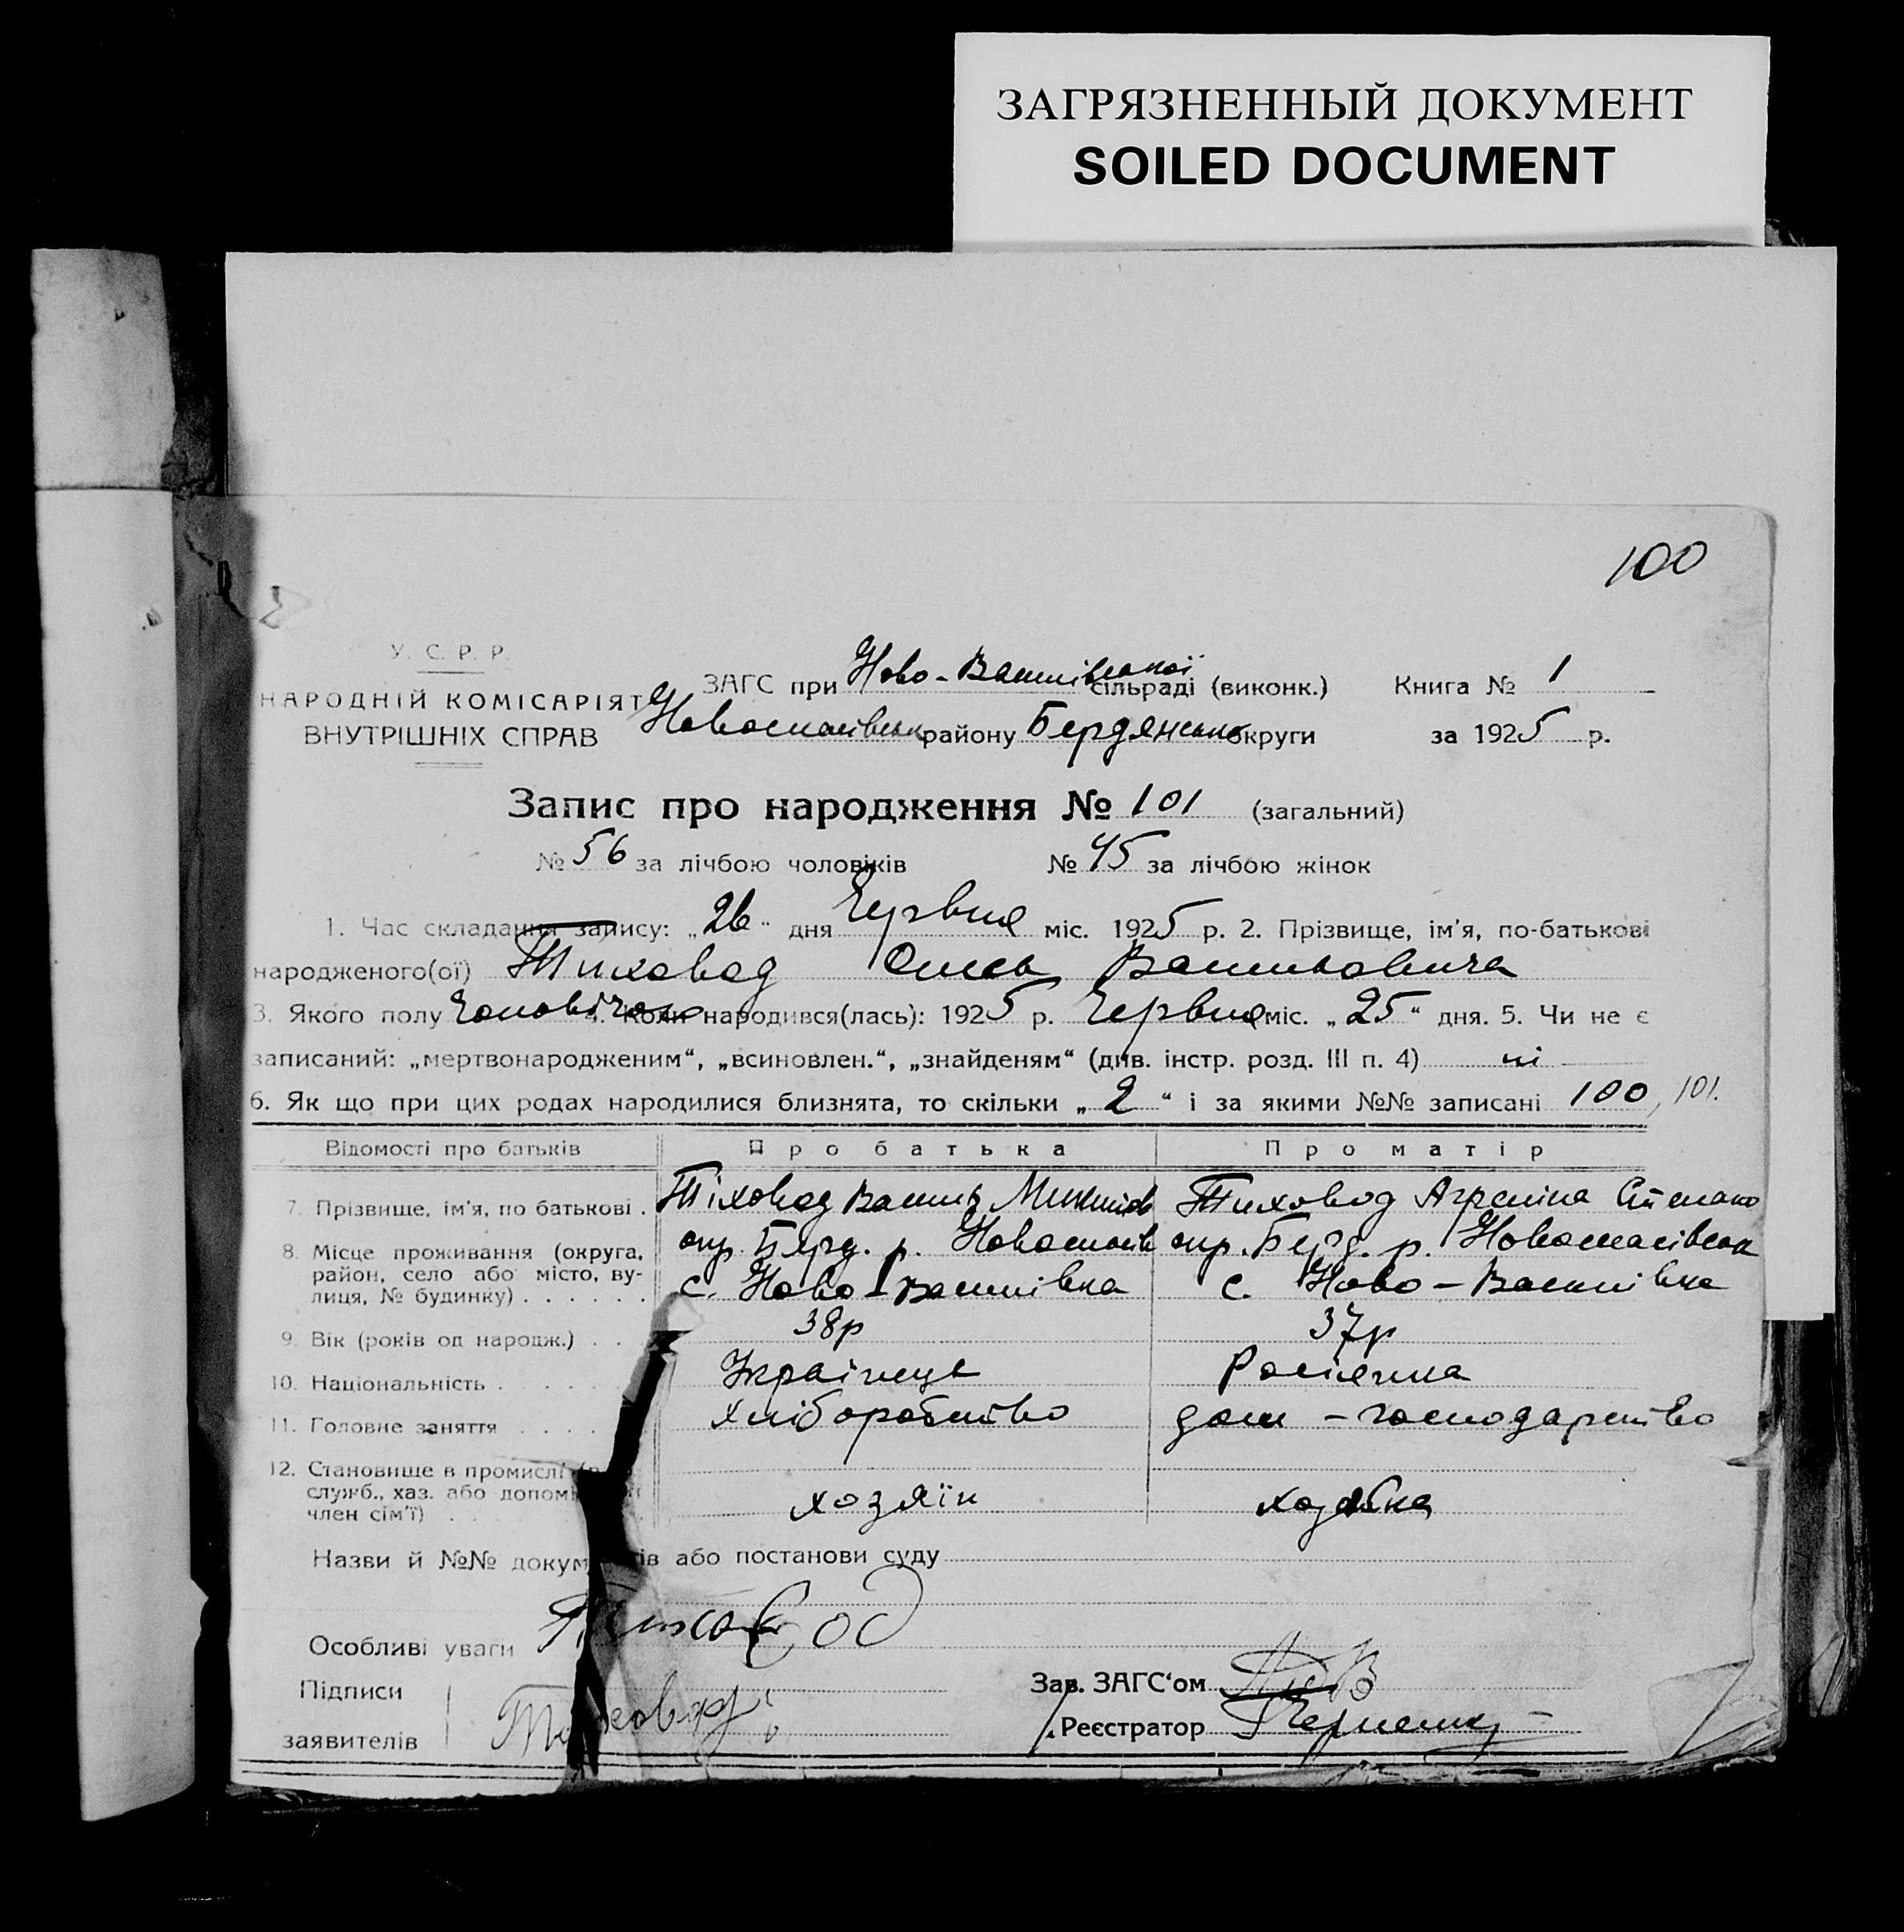 ЗАГРЯЗНЕННЫЙ ДОКУМЕНТ
SOILED DOCUMENT
100
У. С. Р. Р.
НАРОДНІЙ КОМІСАРІЯТ
ВНУТРІШНІХ СПРАВ
ЗАГС при Ново-Василівської сільраді (виконк.) Книга № 1
Новоспасівськ району Бердянсько округи за 1925 р.
Запис про народження № 101 (загальний)
№ 56 за лічбою чоловіків № 45 за лічбою жінок
1. Час складання запису: „26“ дня Червня міс. 1925 р. 2. Прізвище, ім'я, по-батькові
народженого(ої) Тиховод Олесь Васильовича
3. Якого полу Чоловічого 4. Коли народився(лась): 1925 р. Червня міс. „25“ дня. 5. Чи не є
записаний: „мертвонародженим“, „всиновлен.“, „знайденям“ (див. інстр. розд. III п. 4) ні
6. Як що при цих родах народилися близнята, то скільки „2“ і за якими №№ записані 100, 101.
Відомості про батьків Про батька Про матір
7. Прізвище, ім'я, по батькові . Тіховод Василь Тиховод Агрепіна Степано
8. Місце проживання (округа, район, село або місто, вулиця, № будинку) . . . . . . окр. Берд. р. Новоспасів окр. Берд. р. Новоспасівськ
с. Ново-Василівка с. Ново-Василівка
9. Вік (років од народж.) . . 38р 37р
10. Національність . . . . Українець Росіянка
11. Головне заняття . . . . Хліборобство дом - господарство
12. Становище в промислі
служб., хаз. або допом
член сім'ї) . хозяїн хозяйка
Назви й №№ докум ів або постанови суду
Тиховод
Особливі уваги
Підписи
заявителів Тиховод
Зав. ЗАГС'ом
Реєстратор